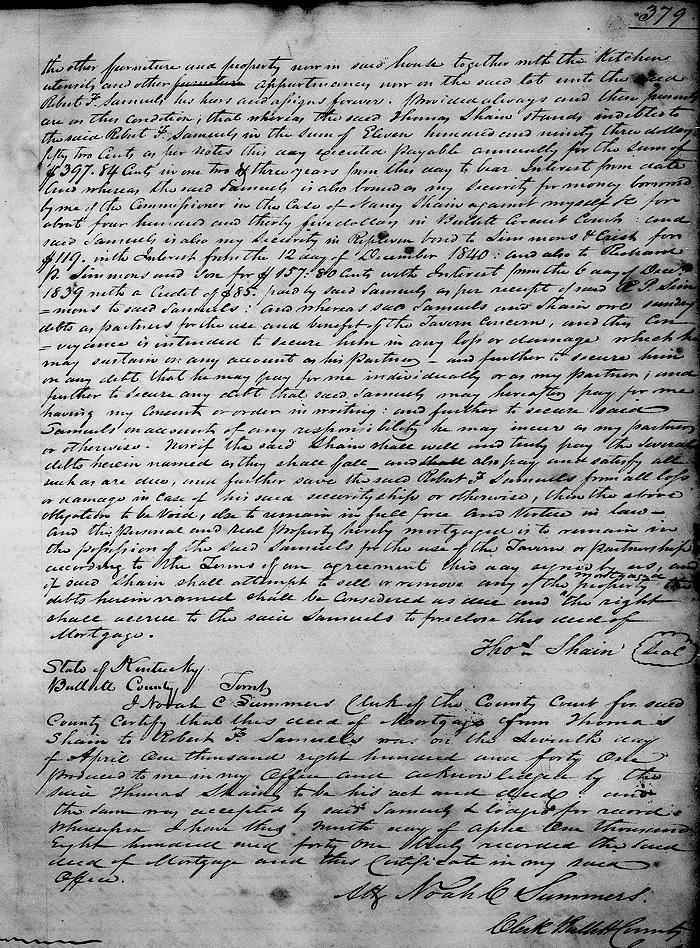 379
the other furniture and property now in said house together with the Kitchen
utensils and other furniture appurtenances now on the said lot unto the said
Robert F. Samuels his heirs and assigns forever. Provided always and these presents
are on this Condition, that whereas the said Thomas Shain Stands indebted to
the said Robert F. Samuels in the sum of Eleven hundred and ninety three dollars
fifty two Cents as per notes this day executed payable annually for the sum of
$397.84 Cents in one two & three years from this day to bear Interest from date
And whereas the said Samuels is also bound as my Security for money borrowed
by me of the Commissioner in the Case of Nancy Shain against myself &c for
about four hundred and thirty five dollars in Bullitt Circuit Court: and
said Samuels is also my Security in Replevin bond to Simmons & for
$119. with Interest from the 12 day of December 1840: and also to Richard
P. Simmons and Son for $157.80 Cents with Interest from the 6 day of Decr.
1839 with a Credit of $85. paid by said Samuels as per receipt of said R. P. Sim
=mons to said Samuels: And whereas said Samuels and Shain owe sundry
debts as partners for the use and benefit of the Tavern Concern, and this Con
=veyance is intended to secure him in any loss or damage which he
may sustain on any account as his Partner – and further to secure him
on any debt that he may pay for me individually or as my partner; and
further to secure any debt that said Samuels may hereafter pay for me
having my Consent or order in writing: and further to secure said
Samuels on account of any responsibility he may incur as my partner
or otherwise. Now if the said Shain shall well and truly pay the several
debts herein named as they shall fall – and shall also pay and satisfy all
such as are due, and further save the said Robert F. Samuels from all loss
or damage in Case of his said securityships or otherwise, then the above
obligation to be Void, else to remain in full force and Vertue in law –
and this personal and real property hereby mortgaged is to remain in
the possession of the said Samuels for the use of the Tavern or partnership
according to the Terms of an agreement this day signed by us, and
if said Shain shall attempt to sell or remove any of the mortgaged property the
debts herein named shall be Considered as due and the right
shall accrue to the said Samuels to foreclose this deed of
Mortgage.
Thos. Shain Seal
State of Kentucky
Bullitt County Towit
I Noah C Summers Clerk of the County Court for said
County Certify that this deed of Mortgage from Thomas
Shain to Robert F. Samuels was on the Seventh day
of April One thousand eight hundred and forty One
produced to me in my Office and acknowledged by the
said Thomas Shain to be his act and deed and
the same was accepted by said Samuels & lodged for record:
Whereupon I have this Ninth day of Aple One thousand
Eight hundred and forty one truly recorded the said
deed of Mortgage and this Certificate in my said
Office.
Att Noah C Summers.
Clerk Bullitt County